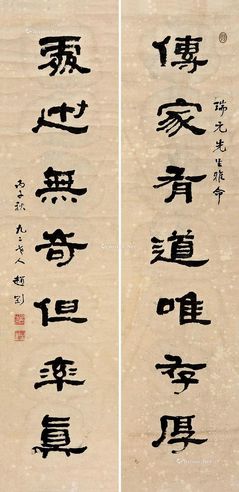 傳家有道唯存厚
瑞元先生雅命
處世無奇但率真
丙子秋九二老人趙剑